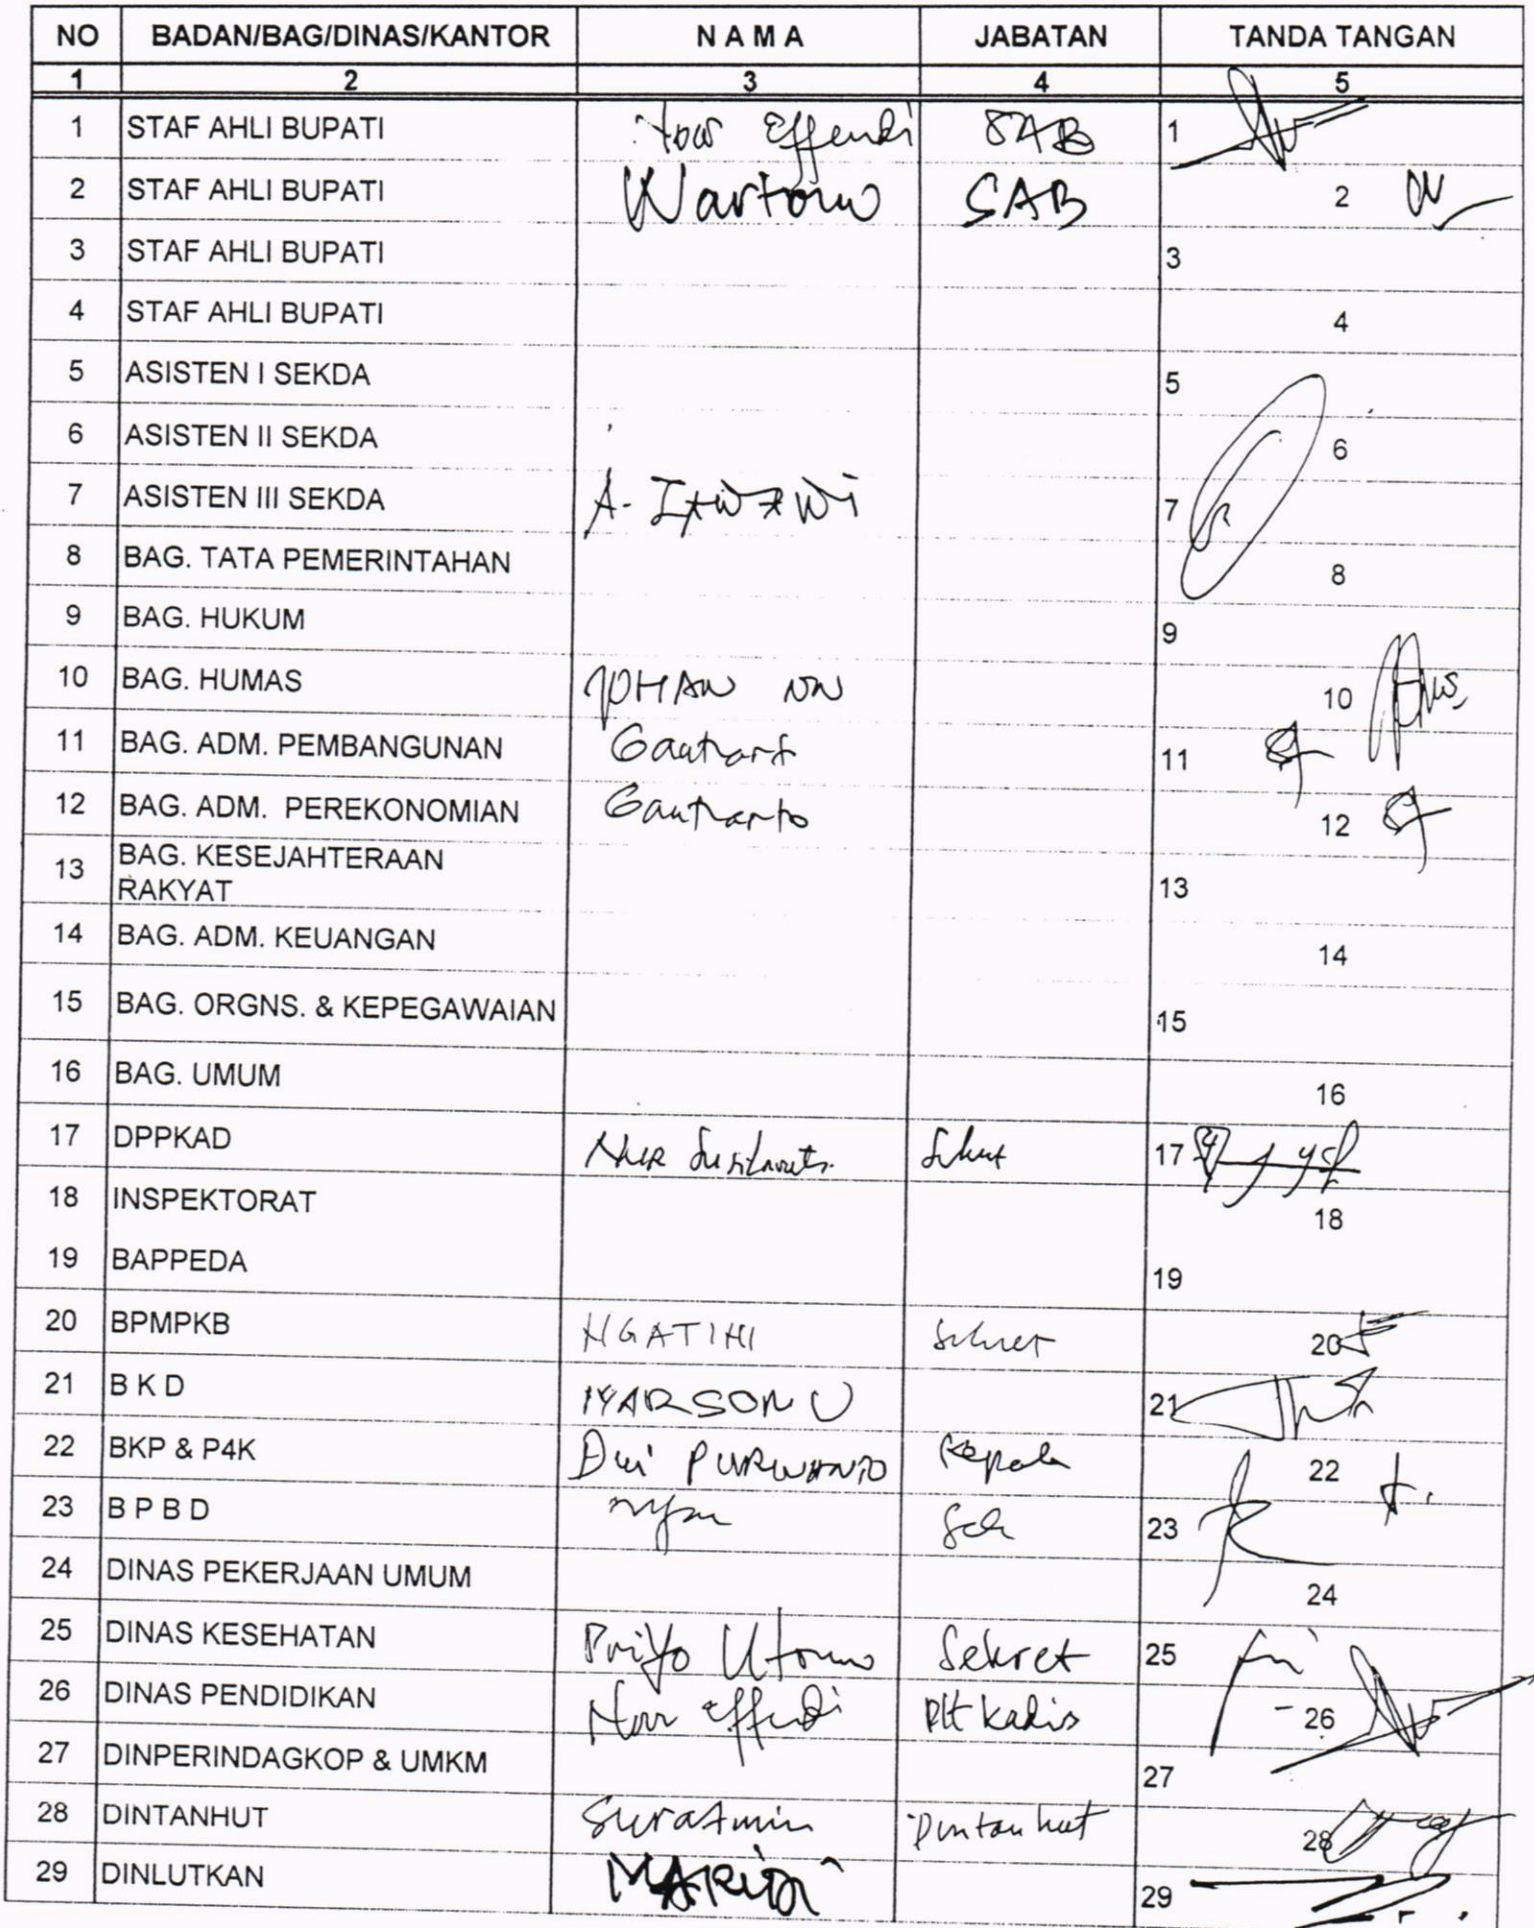 NO BADAN/BAG/DINAS/KANTOR N A M A JABATAN TANDA TANGAN
1 2 3 4 5
1 STAF AHLI BUPATI Effendi SAB 1
2 STAF AHLI BUPATI Wartono SAB 2
3 STAF AHLI BUPATI 3
4 STAF AHLI BUPATI 4
5 ASISTEN I SEKDA 5
6 ASISTEN II SEKDA 6
7 ASISTEN III SEKDA 7
8 BAG. TATA PEMERINTAHAN 8
9 BAG. HUKUM 9
10 BAG. HUMAS 10
11 BAG. ADM. PEMBANGUNAN 11
12 BAG. ADM. PEREKONOMIAN 12
13 BAG. KESEJAHTERAAN 13
RAKYAT
14 BAG. ADM. KEUANGAN 14
15 BAG. ORGNS. & KEPEGAWAIAN 15
16 BAG. UMUM 16
17 DPPKAD 17
18 INSPEKTORAT 18
19 BAPPEDA 19
20 BPMPKB NGATINI Sekret 20
21 B K D MARSONO 21
22 BKP & P4K Dwi PURWANTO Kepala 22
23 B P B D 23
24 DINAS PEKERJAAN UMUM 24
25 DINAS KESEHATAN Priyo Utomo Sekret 25
26 DINAS PENDIDIKAN Noor Effendi Plt Kadis 26
27 DINPERINDAGKOP & UMKM 27
28 DINTANHUT Suratmin Dintanhut 28
29 DINLUTKAN 29